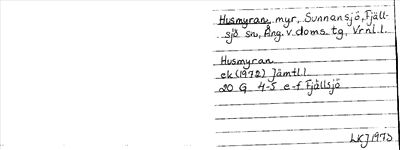 Husmyran, myr, Sunnansjö, Fjäll-
sjö sn, Ång. v. doms. tg, Vrnl.l.
Husmyran
ek (1972) Jämtl.l
20 G 4-5 e-f Fjällsjö
LKJ 1973